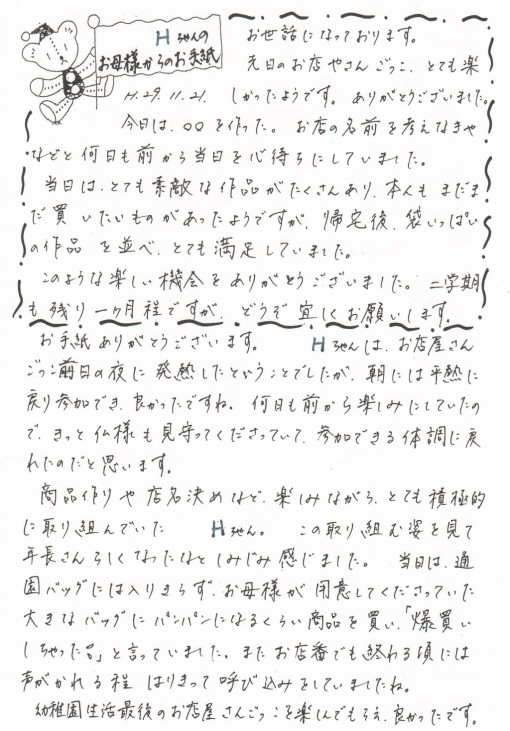 Hちゃんの
お母様からのお手紙
H.29.11.21.
お世話になっております。
先日のお店やさんごっこ、とても楽
しかったようです。ありがとうございました。
今日は、○○を作った。お店の名前を考えなきゃ
などと何日も前から当日を心待ちにしていました。
当日は、とても素敵な作品がたくさんあり、本人もまだま
だ買いたいものがあったようですが、帰宅後、袋いっぱい
の作品を並べ、とても満足していました。
このような楽しい機会をありがとうございました。二学期
も残り一ヶ月程ですが、どうぞ宜しくお願いします。
お手紙ありがとうございます。Hちゃんは、お店屋さん
ごっこ前日の夜に発熱したということでしたが、朝には平熱に
戻り参加でき、良かったですね。何日も前から楽しみにしていたの
で、きっと仏様も見守ってくださっていて、参加できる体調に戻
れたのだと思います。
商品作りや店名決めなど、楽しみながら、とても積極的
に取り組んでいたHちゃん。この取り組む姿を見て
年長さんらしくなったなとしみじみ感じました。当日は、通
園バッグには入りきらず、お母様が用意してくださっていた
大きなバッグにパンパンになるくらい商品を買い、「爆買い
しちゃった!!」と言っていました。またお店番でも終わる頃には
声がかれる程はりきって呼び込みをしていましたね。
幼稚園生活最後のお店屋さんごっこを楽しんでもらえ、良かったです。